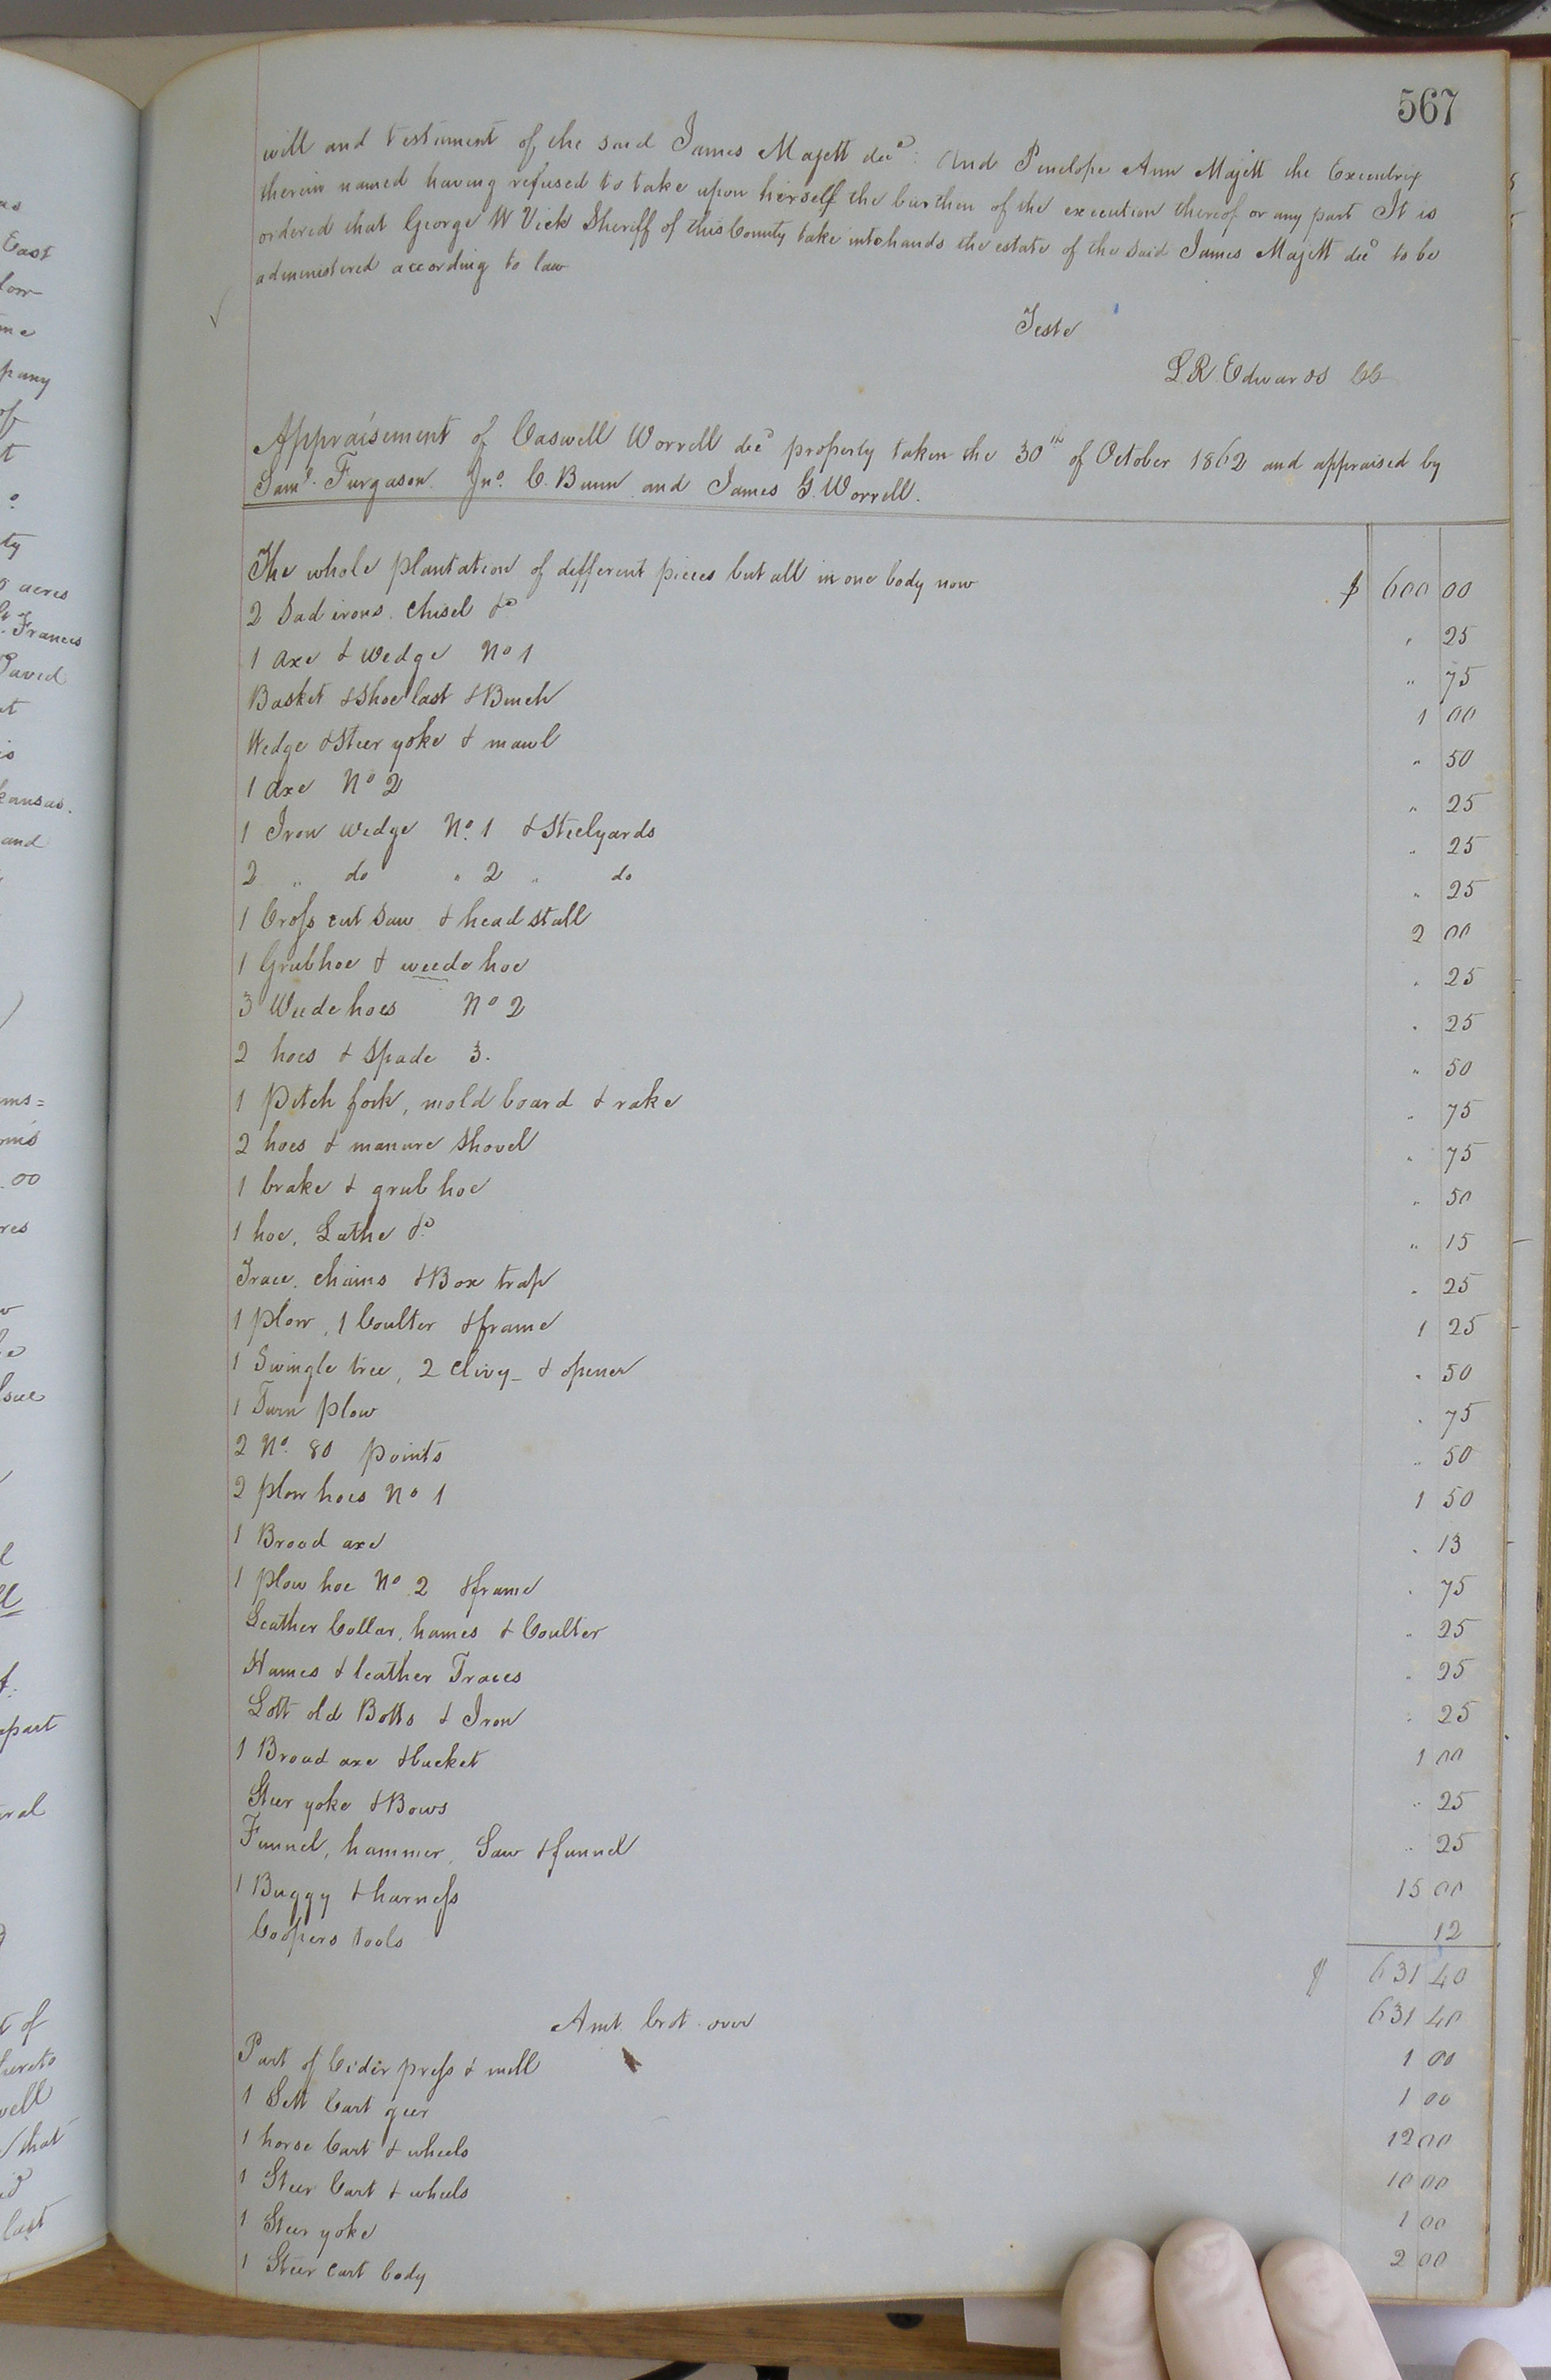 567
will and testament of the said James Majett decd: And Penelope Ann Majett the Executrix
therein named having refused to take upon herself the burthen of the execution thereof or any part It is
ordered that George W Vick Sheriff of this County take into hands the estate of the said James Majett decd to be
administered according to law
Teste
L R Edwards CC
Appraisement of Caswell Worrell decd property taken the 30th of October 1862 and appraised by
Saml. Furgason Jno. C. Bunn and James G. Worrell.
The whole plantation of different pieces but all in one body now $ 600 00
2 Sad irons. chisel &c " 25
1 axe & wedge No 1 " 75
Basket & Shoe last & Bench 1 00
Wedge & Steer yoke & mawl " 50
1 axe No 2 " 25
1 Iron wedge No. 1 & Steelyards " 25
2 " do " 2 " do " 25
1 Cross cut Saw & head stall 2 00
1 Grubhoe & weede hoe " 25
3 Weede hoes No 2 " 25
2 hoes & Spade 3. " 50
1 Pitch fork, mold board & rake " 75
2 hoes & manure Shovel " 75
1 brake & grub hoe " 50
1 hoe, Lathe &c " 15
Trace. chains & Box trap " 25
1 Plow, 1 Coulter & frame 1 25
1 Swingle tree, 2 Clivy & opener " 50
1 Turn Plow " 75
2 No. 80 Points " 50
2 Plow hoes No 1 1 50
1 Broad axe " 13
1 Plow hoe No 2 & frame " 75
Leather Collar, hames & Coulter " 25
Hames & leather Traces " 25
Lott old Botts & Iron " 25
1 Broad axe & bucket 1 00
Steer yoke & Bows " 25
Funnel, hammer, Saw & funnel " 25
1 Buggy & harness 15 00
Coopers tools 12
$ 631 40
Amt brot over 631 40
Part of Cider press & mill 1 00
1 Sett Cart geer 1 00
1 horse Cart & wheels 12 00
1 Steer Cart & wheels 10 00
1 Steer yoke 1 00
1 Steer cart body 2 00